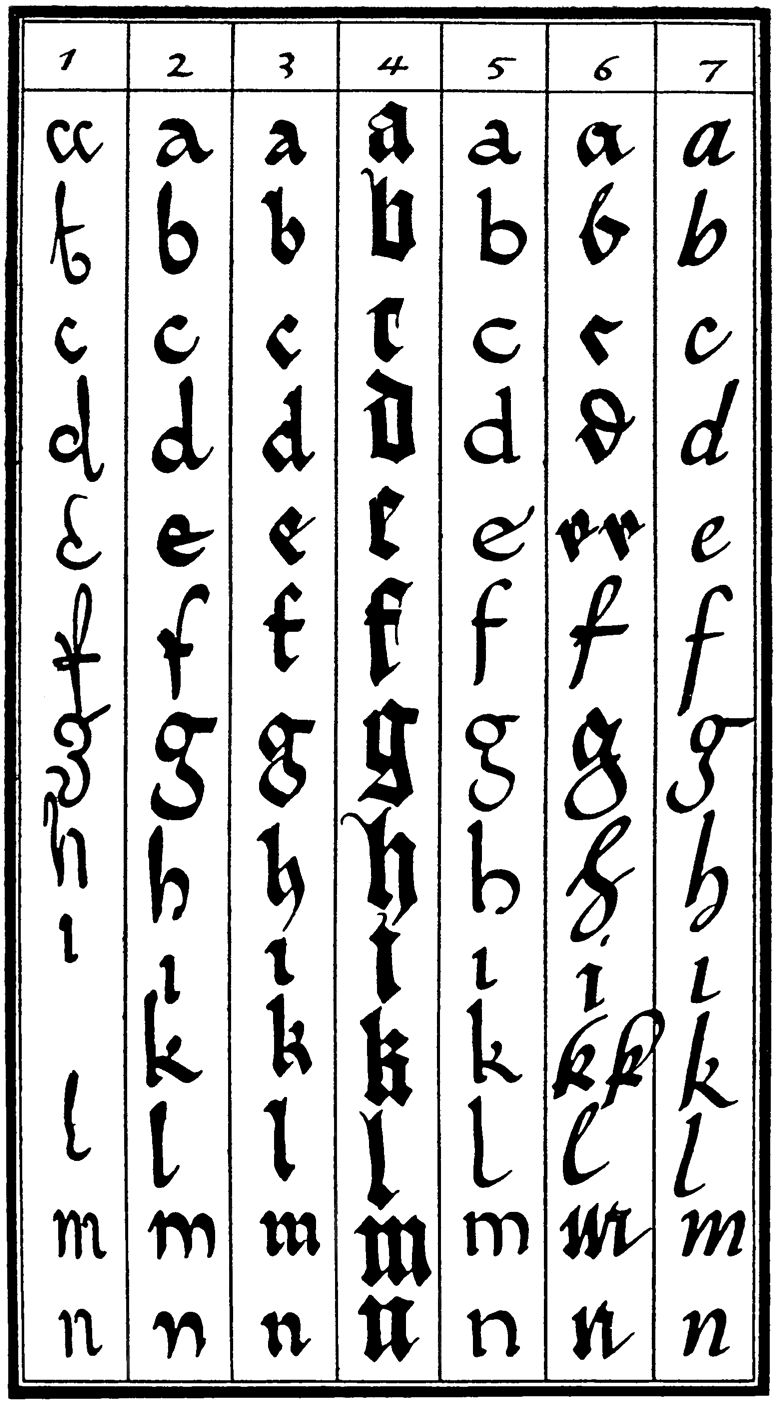 1 2 3 4 5 6 7
a a a a a a a
b b b b b b b
c c c c c c c
d d d d d d d
e e e e e e e e
f f f f f f f
g g g g g g g
h h h h h h h
ı ı ı i ı i ı
k k k k k k k
l l l l l l l
m m m m m m m
n n n n n n n